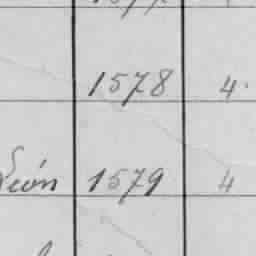 1578 4.
León 1579 4